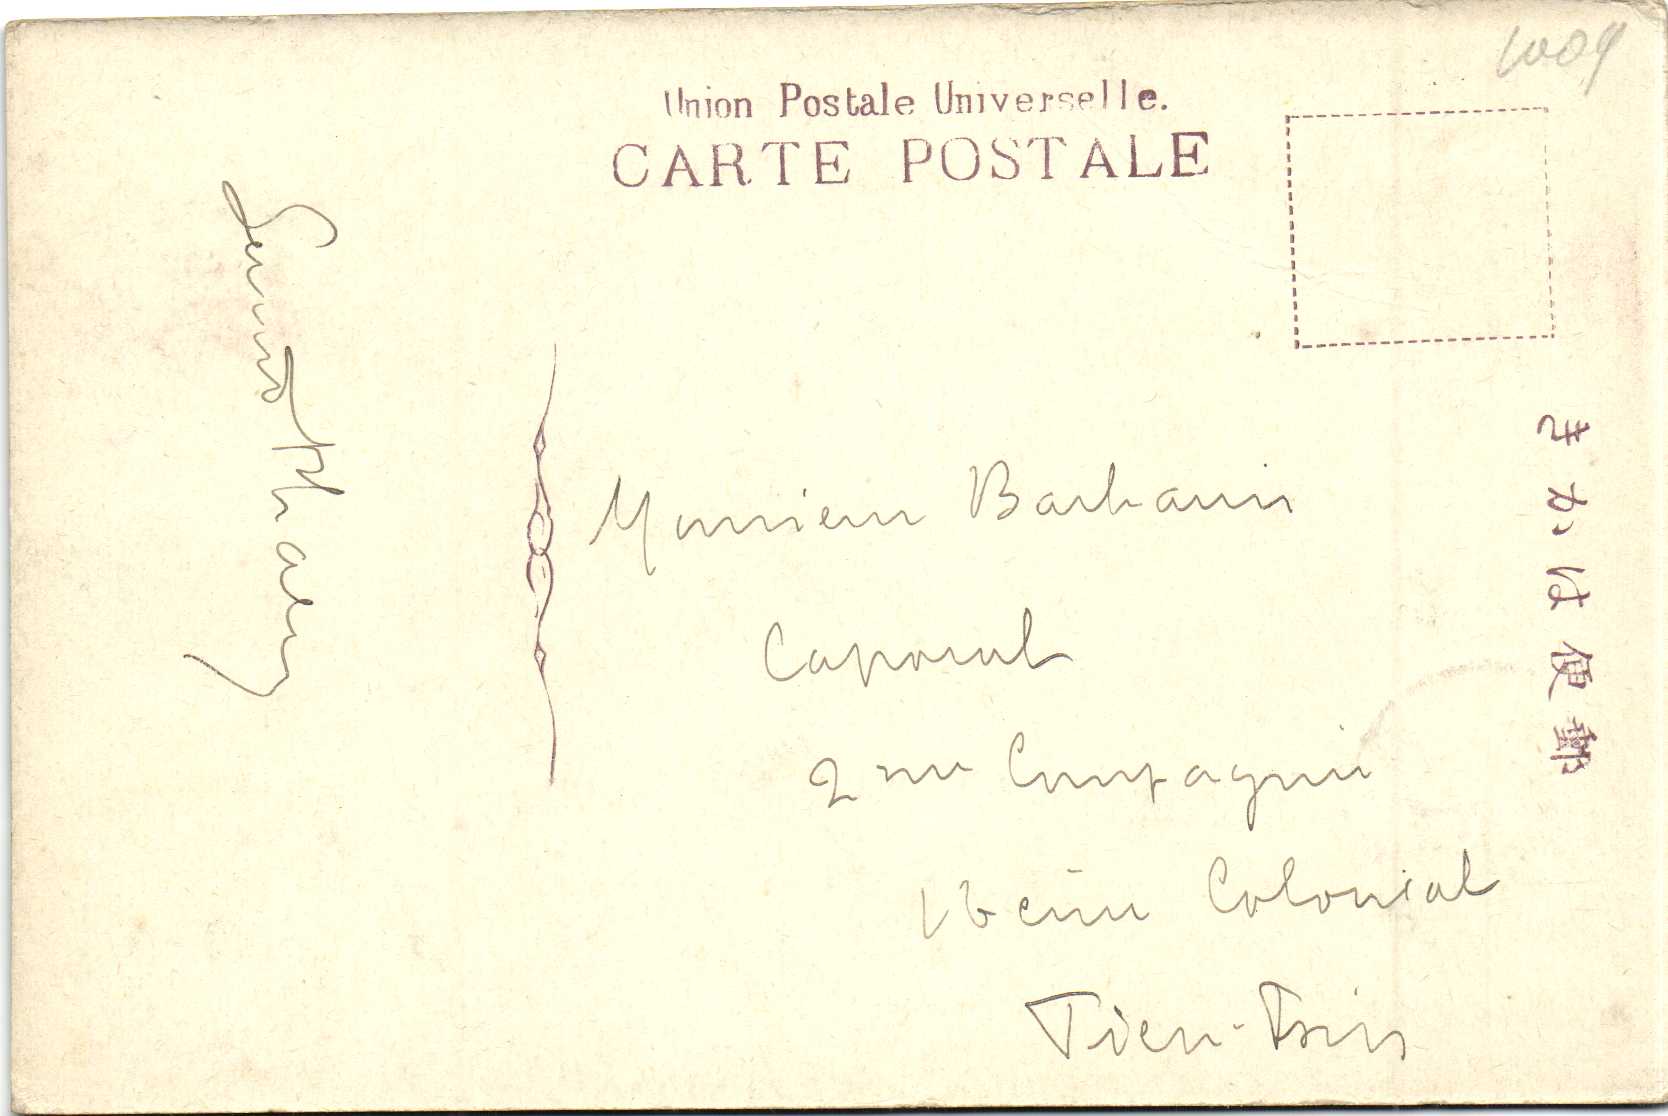 1009
Union Postale Universelle.
CARTE POSTALE
きかは便郵
Monsieur Barbarin
Caporal
2me Compagnie
16eme Colonial
Tien-Tsin